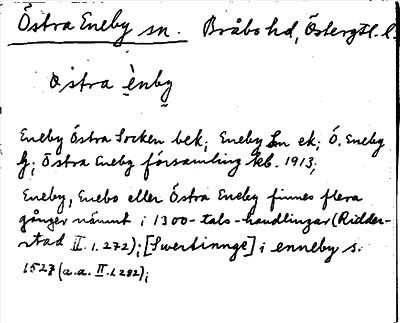 Östra Eneby sn. Bråbo hd, Östergtl. l.
östra ènby
Eneby Östra Socken bek; Eneby Sn ek; Ö. Eneby
Gj; Östra Eneby församling kb. 1913;
Eneby, Enebo eller Östra Eneby finnes flera
gånger nämnt i 1300-tals-handlingar (Ridder-
stad II.1.272); [Swertinnge] i enneby s.
1527 (a.a. II.1.282);